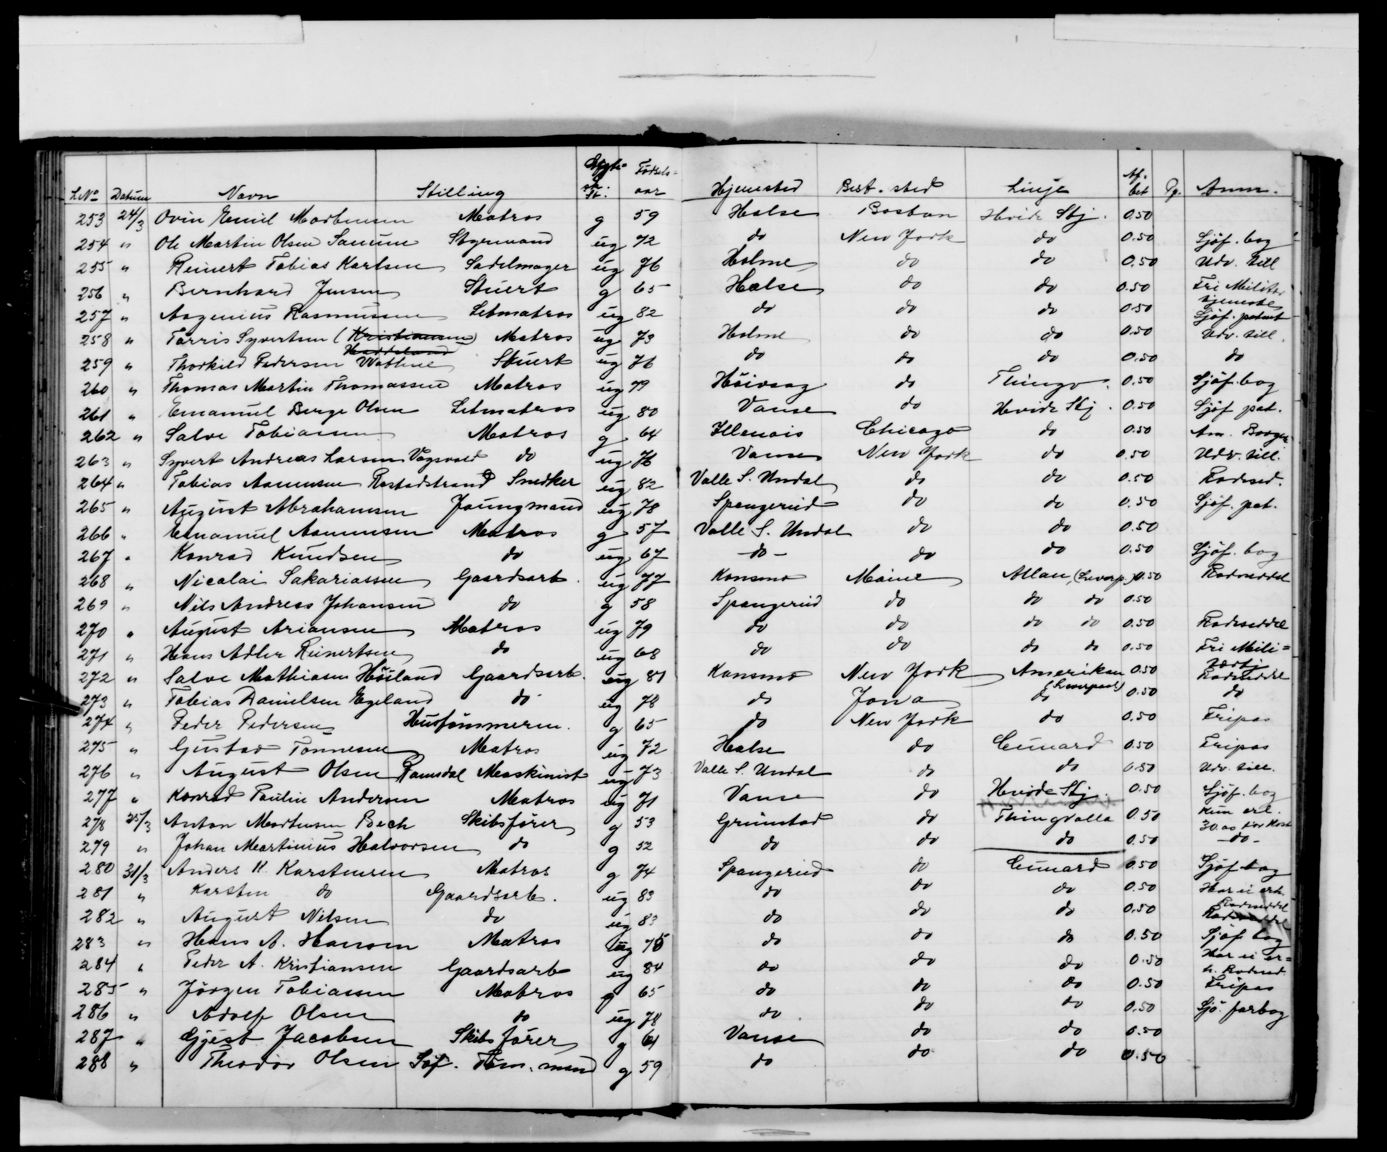 L.No Datum Navn Stilling Ægte- sk. st: Fødsels- aar Hjemsted Best. sted Linje Af. bet Gj. Anm.
253 24/3 Ovin Emil Mortensen Matros g 59 Halse Boston Hvide Stj. 0.50
254 " Ole Martin Olsen Sanum Styrmand ug 72 do New York do 0.50 Sjøf. bog
255 " Reinert Tobias Karlsen Sadelmager ug 76 Holme do do 0.50 Udv. till
256 " Bernhard Jensen Stuert g 65 Halse do do 0.50 Fri Militær tjeneste
257 " Aagenius Rasmussen Letmatros ug 82 do do do 0.50 Sjøf. patent
258 " Torris Syvertsen (Kristiansen) Matros ug 73 Holme do do 0.50 Udv. till.
259 " Thorkild Pedersen Stuert ug 76 do do do 0.50 do
260 " Thomas Martin Thomassen Matros ug 79 Høivaag do Thingv. 0.50 Sjøf. bog
261 " Emanuel Berge Olsen Letmatros ug 80 Vanse do Hvide Stj. 0.50 Sjøf pat.
262 " Salve Tobiasen Matros g 64 Illenois Chicago do 0.50 Am. Borger
263 " Syvert Andreas Larsen Vogsvold do ug 76 Vanse New York do 0.50 Udv. till.
264 " Tobias Aanensen Rostadstrand Snedker ug 82 Valle S. Undal do do 0.50 Rodsed.
265 " August Abrahamsen Joungmand ug 78 Spangereid do do 0.50 Sjøf. pat.
266 " Emanuel Aanensen Matros g 57 Valle S. Undal do do 0.50
267 " Konrad Knudsen do ug 67 -do- do do 0.50 Sjøf. bog
268 " Nicolai Sakariassen Gaardsarb. ug 77 Konsmo Maine Allan (Liverp.) 0.50 Rodseddel
269 " Nils Andreas Johansen do g 58 Spangereid do do do 0.50
270 " August Ariansen Matros ug 79 do do do do 0.50 Rodseddel
271 " Hans Adler Reinertsen do ug 68 do do do do 0.50 Fri Mili=
272 " Salve Mathiasen Høiland Gaardsarb. ug 81 Konsmo New York Amerikan 0.50 Rodseddel
273 " Tobias Danielsen Egeland do ug 78 do Jowa do (Liverpool) 0.50 do
274 " Peder Pedersen Hustømmerm. g 65 do New York do 0.50 Fripas
275 " Gustav Tønnesen Matros ug 72 Halse do Cunard 0.50 Fripas
276 " August Olsen Ramsdal Maskinist ug 73 Valle S. Undal do do 0.50 Udv. till.
277 " Konrad Paulin Andersen Matros ug 71 Vanse do Hvide Stj. 0.50 Sjøf. bog
278 25/3 Anton Mortensen Bech Skibsfører g 53 Grimstad do Thingvalla 0.50 Kun erl. 30.00
279 " Johan Martinius Halvorsen do g 52 do do do 0.50 -do-
280 31/3 Anders H. Karstensen Matros g 74 Spangereid do Cunard 0.50 Sjøf. bog
281 " Karsten do Gaardsarb. ug 83 do do do 0.50 Har ei erh. Rodseddel
282 " August Nilsen do ug 83 do do do 0.50 Rodseddel
283 " Hans A. Hansen Matros ug 75 do do do 0.50 Sjøf. bog
284 " Peder A. Kristiansen Gaardsarb ug 84 do do do 0.50 Har ei er= h. Rodsed
285 " Jørgen Tobiasen Matros g 65 do do do 0.50 Fripas
286 " Adolf Olsen do ug 78 do do do 0.50 Sjø. farbog
287 " Gjest Jacobsen Skibsfører g 61 Vanse do do 0.50
288 " Theodor Olsen Tøm. mand g 59 do do do 0.50